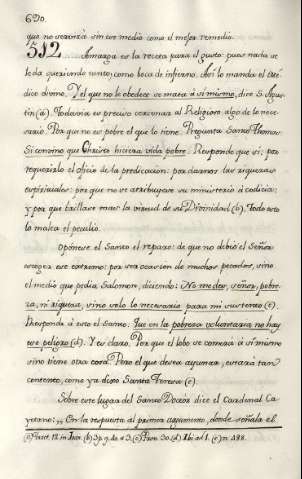 690.
que no venenza sin ese medio como el mejor remedio.
512. Amarga es la receta para el gusto: pues nada se
le da queriendo tanto, como boca de infierno. Así lo manda el Mé-
dico divino. Y el que no le obedece se mata à sí mismo, dice S. Agus-
tin (a). Todavía es preciso conservar al Religioso algo de lo nece-
sario. Por que no es pobre el que lo tiene. Pregunta Santo Thomas:
Si convino que Christo hiciera vida pobre. Responde que sí: por
requerirlo el oficio de la predicacion: por darnos las riquezas
espirituales: por que no se atribuyese su ministerio à codicia:
y por que brillase mas la virtud de su Divinidad (b). Todo esto
lo malea el peculio.
Opónese el Santo el reparo: de que no debió el Señor
escoger ese extremo: por ser ocasion de muchos pecados, sino
el medio que pedia Salomon, diciendo: No me des, señor, pobre-
za, ni riqueza, sino solo lo necesario para mi sustento (c)
Responde à esto el Santo: Que en la pobreza voluntaria no hay
ese peligro (d). Y es claro. Por que el lobo se comerá à sí mismo
sino tiene otra cosa. Pero el que desea ayunar, estará tan
contento, como ya dixo Santa Teresa (e).
Sobre este lugar del Santo Doctor dice el Cardenal Ca-
yetano: „ En la respuesta al primer argumento, donde señala el